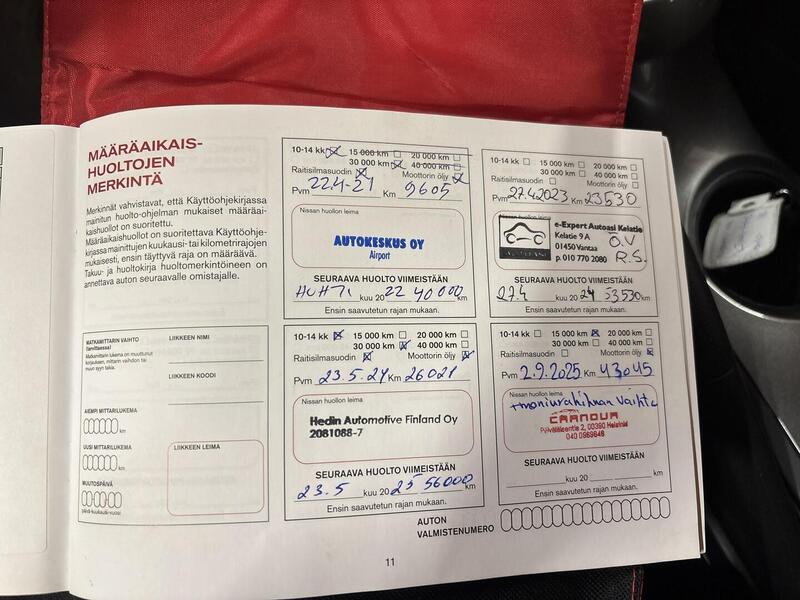 MÄÄRÄAIKAIS-
HUOLTOJEN
MERKINTÄ
Merkinnät vahvistavat, että Käyttöohjekirjassa
mainitun huolto-ohjelman mukaiset määräai-
kaishuollot on suoritettu.
Määräaikaishuollot on suoritettava Käyttöohje-
kirjassa mainittujen kuukausi- tai kilometrirajojen
mukaisesti, ensin täyttyvä raja on määräävä.
Takuu- ja huoltokirja huoltomerkintöineen on
annettava auton seuraavalle omistajalle.
MATKAMITTARIN VAIHTO
(tarvittaessa)
Matkamittarin lukema on muuttunut
korjauksen, mittarin vaihdon tai
muun syyn takia.
AIEMPI MITTARILUKEMA
km
UUSI MITTARILUKEMA
km
MUUTOSPÄIVÄ
päivä-kuukausi-vuosi
LIIKKEEN NIMI
LIIKKEEN KOODI
LIIKKEEN LEIMA
10-14 kk 15 000 km 20 000 km
30 000 km 40 000 km
Raitisilmasuodin Moottorin öljy
Pvm 22.4-21 Km 9605
Nissan huollon leima
AUTOKESKUS OY
Airport
SEURAAVA HUOLTO VIIMEISTÄÄN
HUHTI kuu 2022 40000 km
Ensin saavutetun rajan mukaan.
10-14 kk 15 000 km 20 000 km
30 000 km 40 000 km
Raitisilmasuodin Moottorin öljy
Pvm 27.4.2023 Km 23530
Nissan huollon leima
e-Expert Autoasi Kelatie
Kelatie 9 A
01450 Vantaa
p. 010 770 2080
AUTOASI
Ö.V
R.S.
SEURAAVA HUOLTO VIIMEISTÄÄN
27.4 kuu 2024 53530 km
Ensin saavutetun rajan mukaan.
10-14 kk 15 000 km 20 000 km
30 000 km 40 000 km
Raitisilmasuodin Moottorin öljy
Pvm 23.5.24 Km 26021
Nissan huollon leima
Hedin Automotive Finland Oy
2081088-7
SEURAAVA HUOLTO VIIMEISTÄÄN
23.5 kuu 2025 56000 km
Ensin saavutetun rajan mukaan.
10-14 kk 15 000 km 20 000 km
30 000 km 40 000 km
Raitisilmasuodin Moottorin öljy
Pvm 2.9.2025 Km 43045
Nissan huollon leima
+moniurahihnan vaihto
CARNOUR
00390 Helsinki
040 0969646
SEURAAVA HUOLTO VIIMEISTÄÄN
kuu 20 km
Ensin saavutetun rajan mukaan.
AUTON
VALMISTENUMERO
11